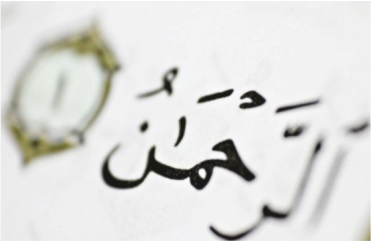 ٱلرَّحْمَٰنُ ١